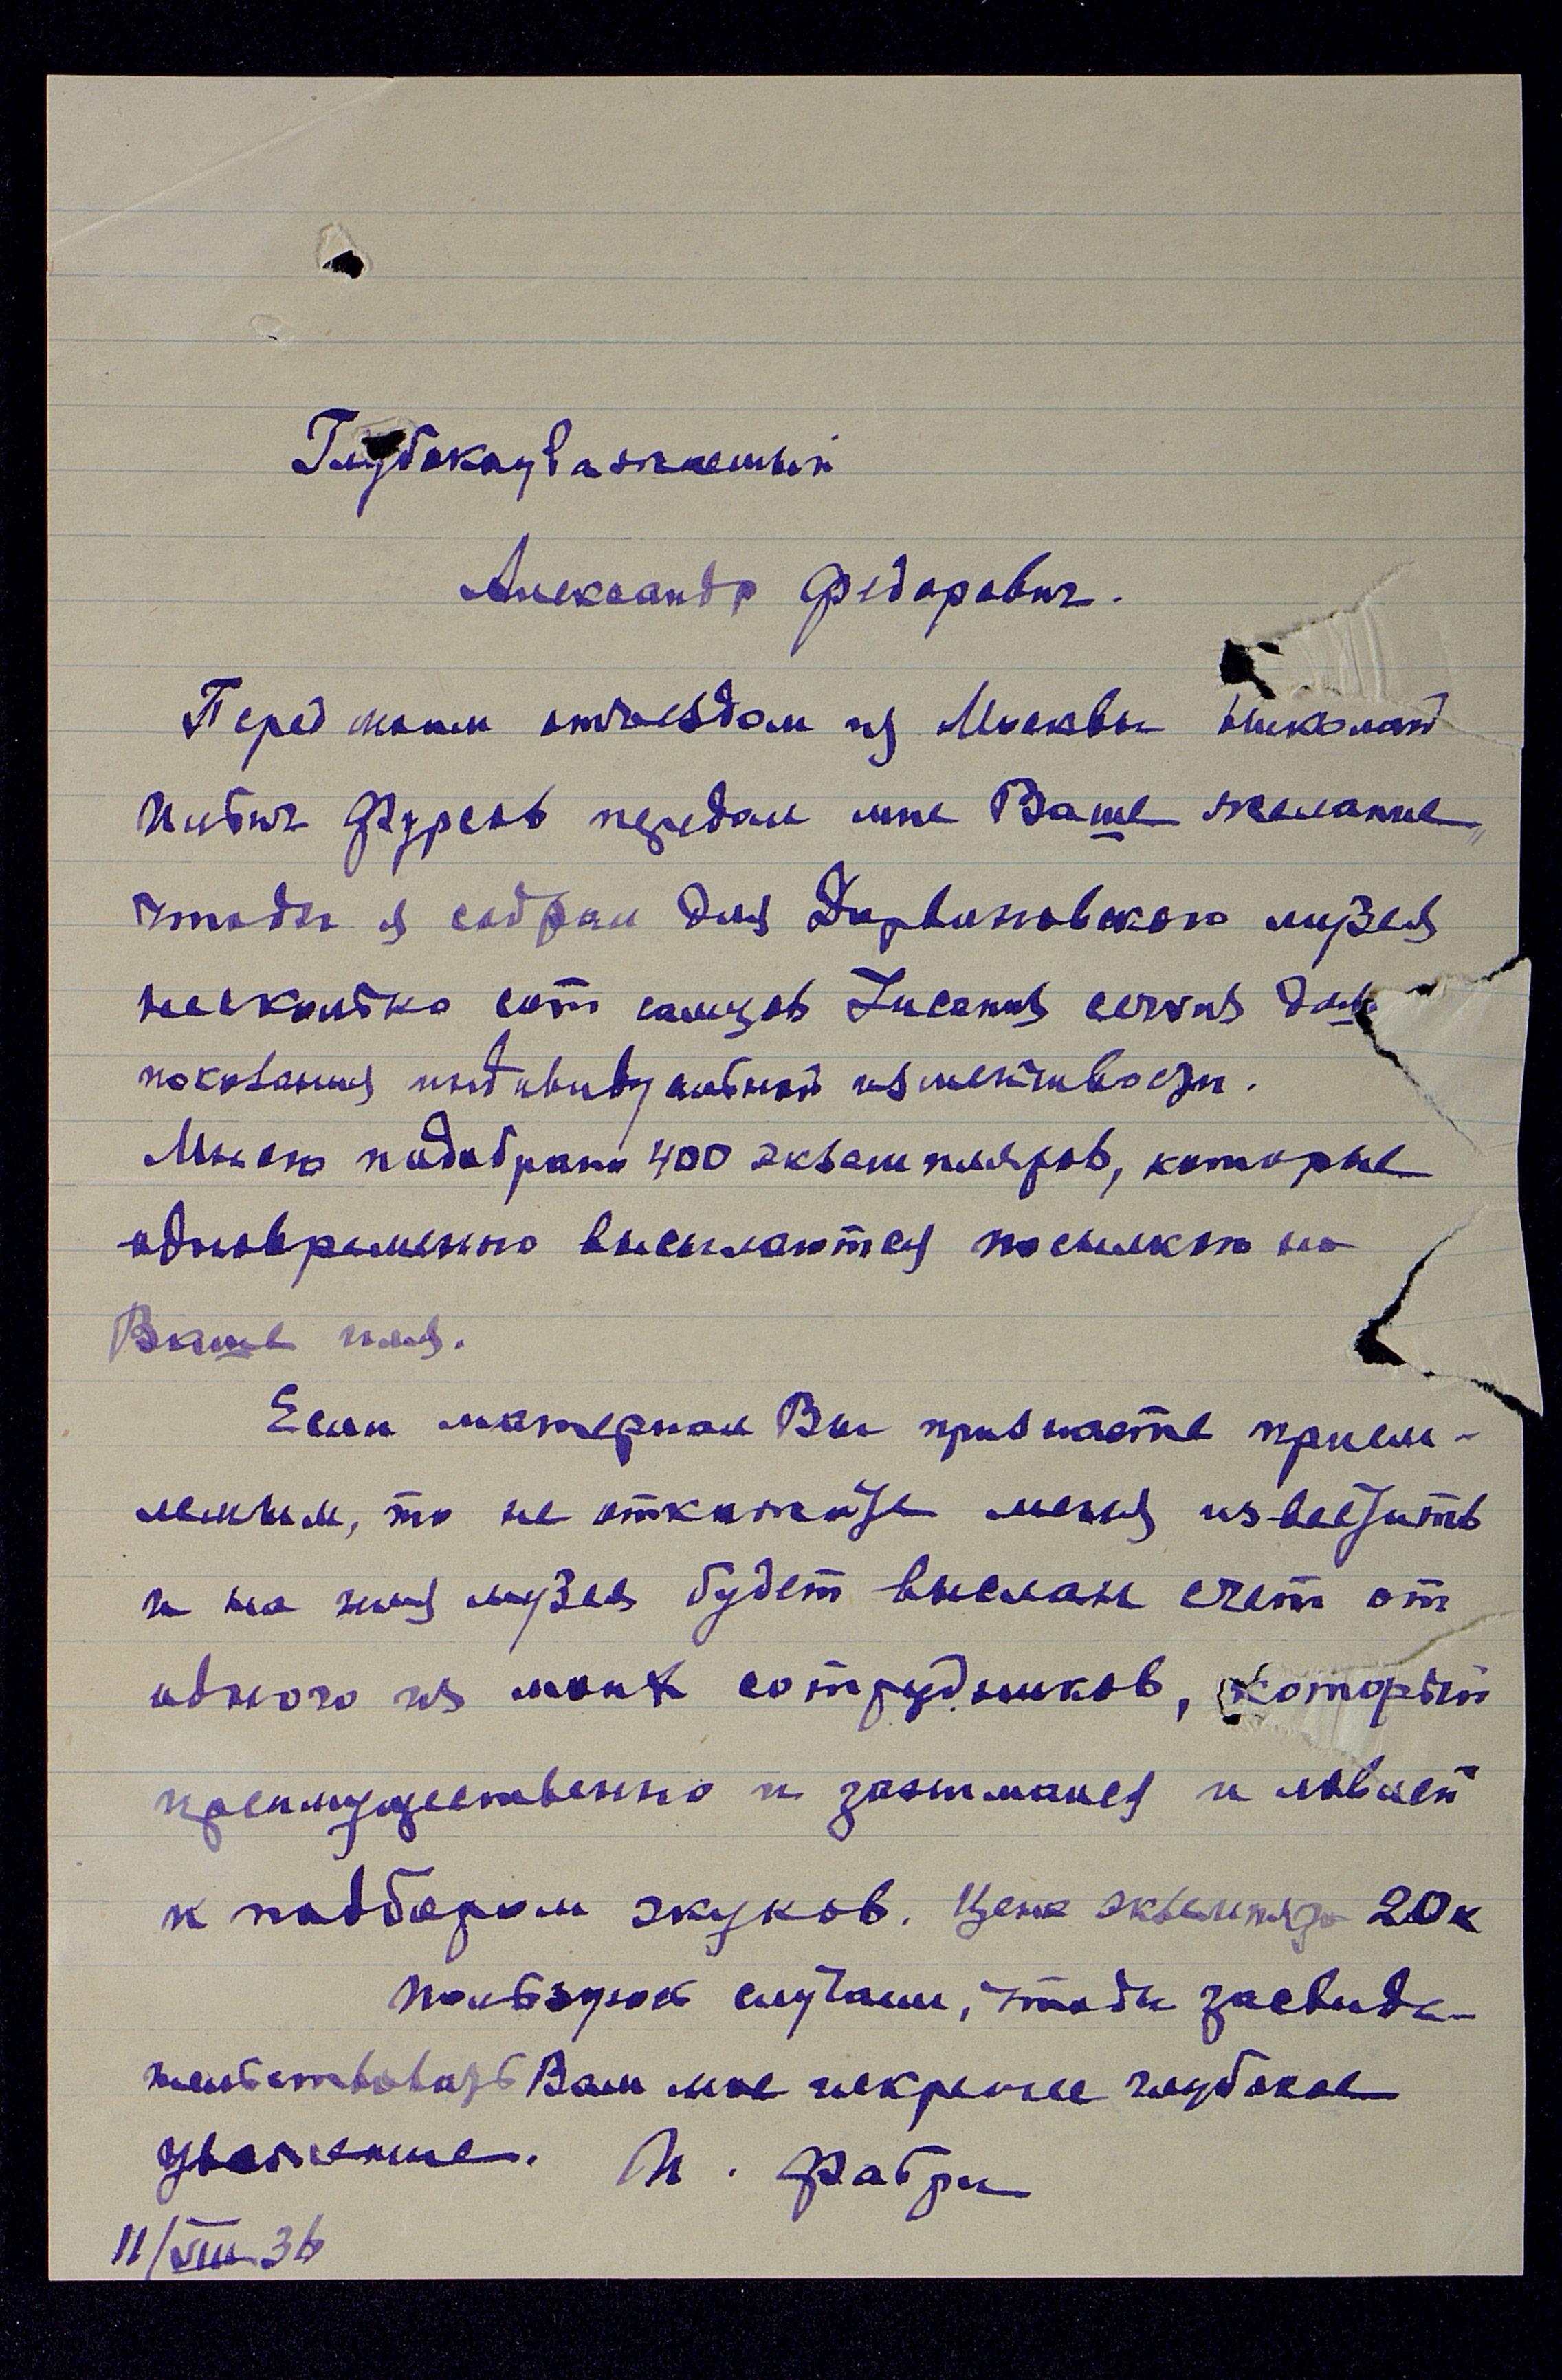 Глубокоуважаемый
Александр Федорович.
Перед моим отъездом из Москвы Николай
Ильич Фурсов передал мне Ваше желание,
чтобы я собрал для Дарвиновского музея
несколько сот самцов Lucanus cervus для
показания индивидуальной изменчивости.
Мною подобрано 400 экземпляров, которые
одновременно высылаются посылкою на
Ваше имя.
Если материал Вы признаете прием-
лемым, то не откажите меня известить
и на имя музея будет выслан счет от
одного из моих сотрудников, который
преимущественно и занимался и ловлей
и подбором жуков. Цена экземпляра 20 к
Пользуюсь случаем, чтобы засвиде-
тельствовать Вам мое искреннее глубокое
уважение. И. Фабри
11/VIII 36